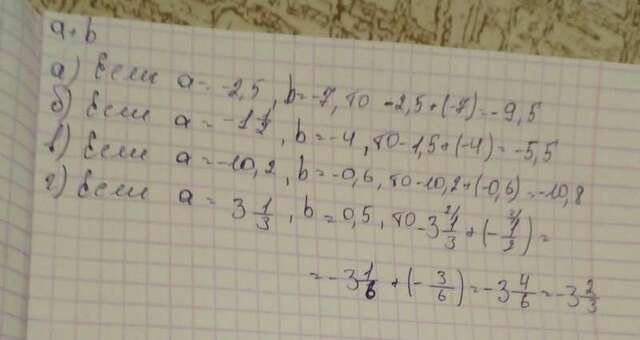 a+b
а) Если a = -2,5, b = -7, то -2,5+(-7) = -9,5
б) Если a = -1 1/2, b = -4, то -1,5+(-4) = -5,5
в) Если a = -10,2, b = -0,6, то -10,2+(-0,6) = -10,8
г) Если a = 3 1/3, b = 0,5, то -3 1/3 + (- 1/2) =
= -3 1/6 + (- 3/6) = -3 4/6 = -3 2/3